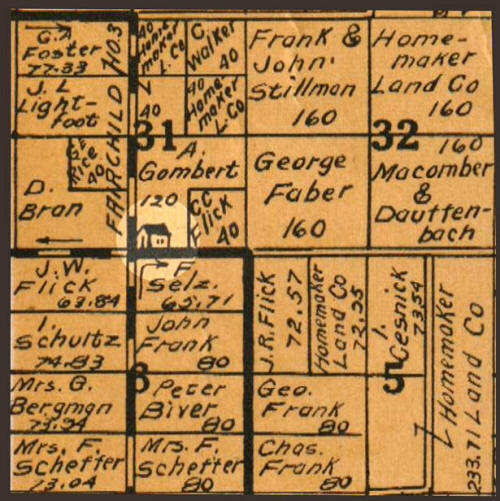 G.A
Foster
77.33
FAIRCHILD
NO3
40
Homemaker
L. Co
C.
Walker
40
Frank &
John
Stillman
160
Home-
maker
Land Co
160
J. L
Light-
foot
40
40
Home-
maker
L. Co
31
32
D.
Bran
G E
Rice
40
A.
Gombert
120
C C
Flick
40
George
Faber
160
160
Macomber
&
Dautten-
bach
J.W.
Flick
63.84
F
Selz.
65.71
J.R. Flick
72.57
Homemaker
Land Co
72.95
I.
Cesnick
73.54
Homemaker
Land Co
233.71
I.
Schultz
74.83
John
Frank
80
6
5
Mrs. G.
Bergman
73.94
Peter
Biver
80
Geo.
Frank
80
Mrs. F.
Scheffer
73.04
Mrs. F.
Scheffer
80
Chas.
Frank
80